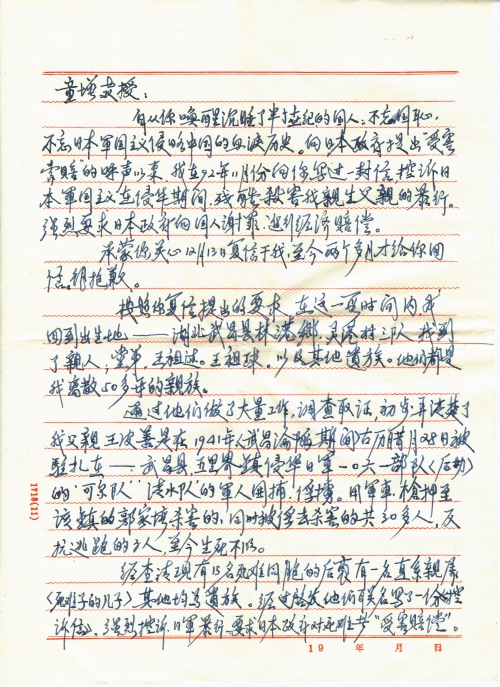 童增教授：
自从你唤醒沉睡了半个世纪的国人，不忘国耻，
不忘日本军国主义侵略中国的血泪历史。向日本政府提出“受害
索赔”的呼声以来，我在92年11月份向你寄过一封信，控诉日
本军国主义在侵华期间，残酷杀害我亲生父亲的暴行。
强烈要求日本政府向国人谢罪，进行经济赔偿。
承蒙你关心12月13日复信于我，至今两个多月才给你回
信。很抱歉。
按照你复信提出的要求，在这一段时间内，我
回到出生地——湖北武昌县林港乡，灵港村三队，找到
了亲人，堂弟，王祖述。王祖球，以及其他遗族。他们都是
我离散50多年的亲族。
通过他们做了大量工作，调查取证，初步弄清楚了
我父亲王凌善是在1941年〈武昌沦陷期间〉古历腊月28日被
驻扎在——武昌县，五里界镇侵华日军一〇六一部队〈后勤〉
的“可尔队”“清水队”的军人围捕，俘掳。用军车，枪押至
该镇的郭家塆杀害的，同时被俘去杀害的共30多人，反
抗逃跑的3人，至今生死不明。
经查清现有15名死难同胞的后裔有一名直系亲属
〈死难子的儿子〉其他均为遗族。经过启发他们联名写了一份〈控
诉信〉，强烈控诉日军暴行，要求日本政府对死难者“受害赔偿”。
1718(11)
19 年 月 日